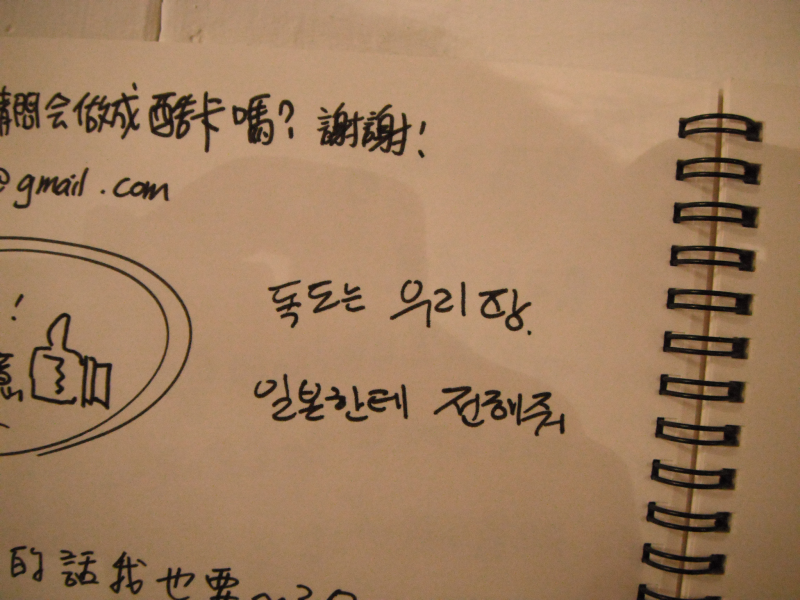 請問会做成酷卡嗎? 謝謝!
@gmail.com
!
독도는 우리땅.
일본한테 전해줘
的話我也要